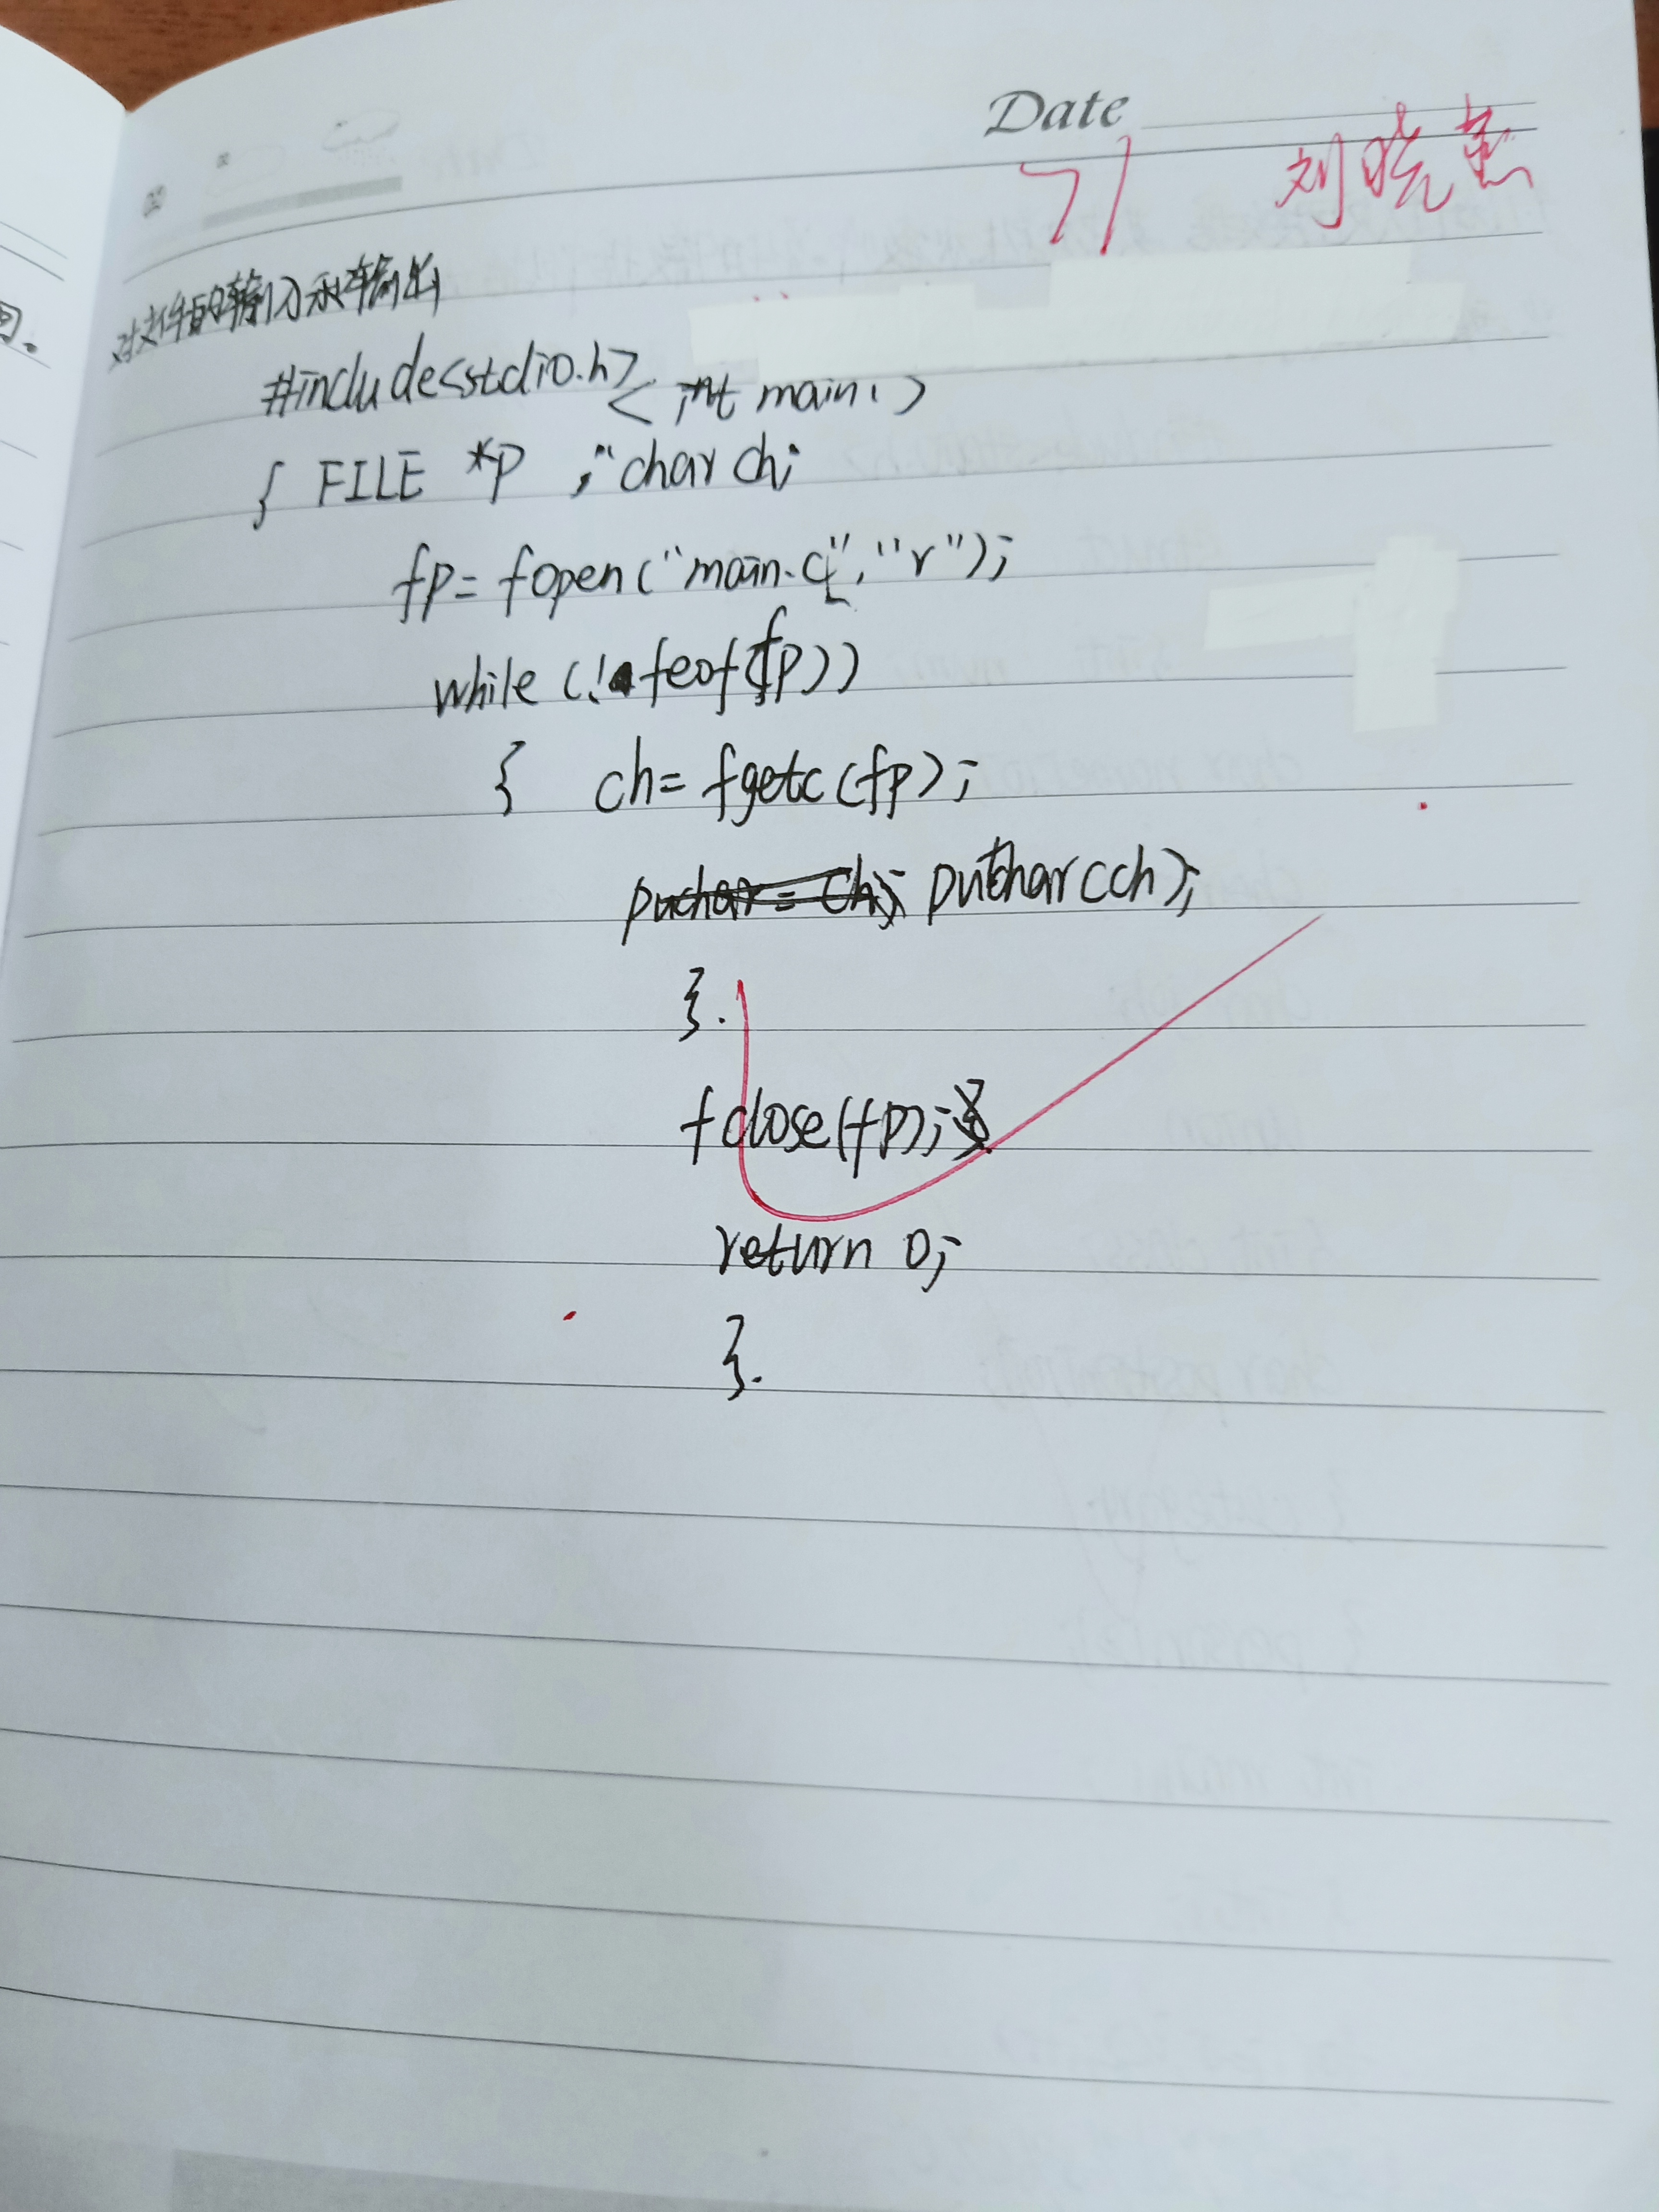 Date
71 刘晓惠
对文件的输入和输出
#include<stdio.h>
< int main( )
{ FILE *p ; char ch;
fp= fopen("main.c", "r");
while (! feof(fp))
{ ch= fgetc(fp);
puchar = ch; putchar(ch);
}.
fclose(fp);
return 0;
}.